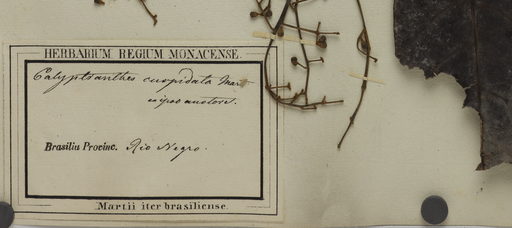 HERBARIUM REGIUM MONACENSE.
Calyptranthes cuspidata Mart
Brasiliae Provinc. Rio Negro.
Martii iter brasiliense.